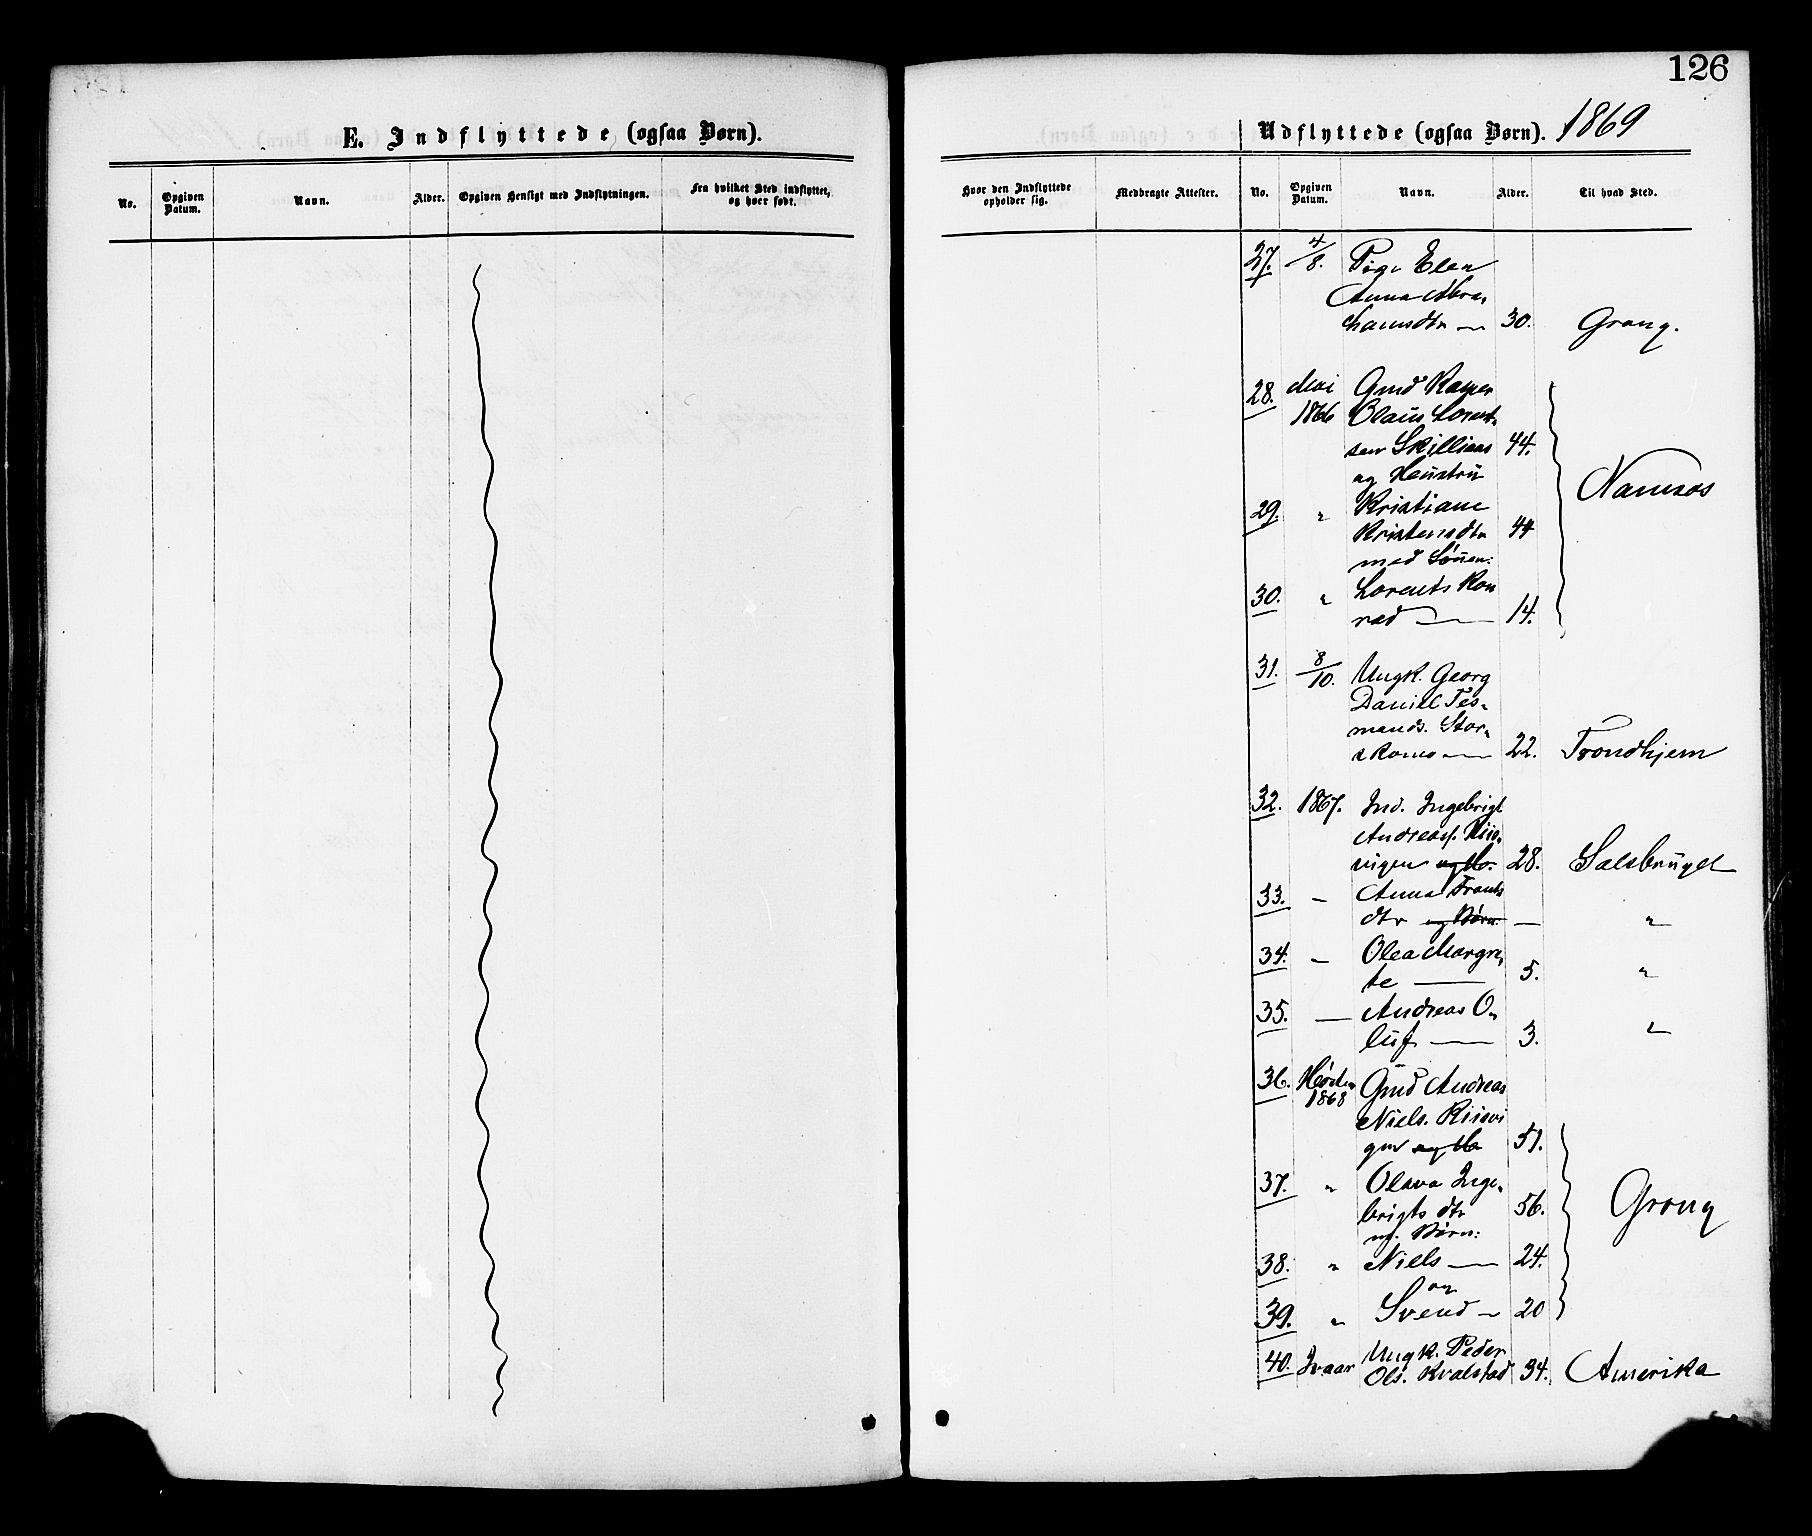 126
E. Indflyttede (ogsaa Børn).
No.
Opgiven Datum.
Navn.
Alder.
Opgiven Hensigt med Indflytningen.
Fra hvilket Sted indflyttet, og hver født.
Udflyttede (ogsaa Børn). 1869
Hvor den Indflyttede opholder sig.
Medbragte Attester.
No.
Opgiven Datum.
Navn.
Alder.
Til hvad Sted.
27. 4/8. Pige Elen
Anna Abra-
hamsdtr — 30. Grong.
28. Mai Gmd Kasper
1866 Olaus Lorent-
sen Skillinas 44.
og Heustru
29. " Kristiane
Kristensdtr 44
med Sønen:
30. " Lorents Kon
rad — 14.
Namsos
31. 8/10. Ungk. Georg
Daniel Tes-
mands. Stor-
22. Trondhjem
32. 1867. Ind. Ingebrigt
Andreass. Riis-
vigen og 28. Salsbruget
33. — Anna Frants
dtr og Børn — "
34. — Olea Margre-
te — 5. "
35. — Andreas O-
luf — 3. "
36. Høsten Gmd Andreas
1868 Niels. Riisvi
gen og 51.
37. " Olava Inge-
brigts dtr 56.
m. Børn:
38. " Niels — 24.
og
39. " Svend — 20
Grong
40. Ivaar Ungk. Peder
Ols. Kvalstad 34. Amerika